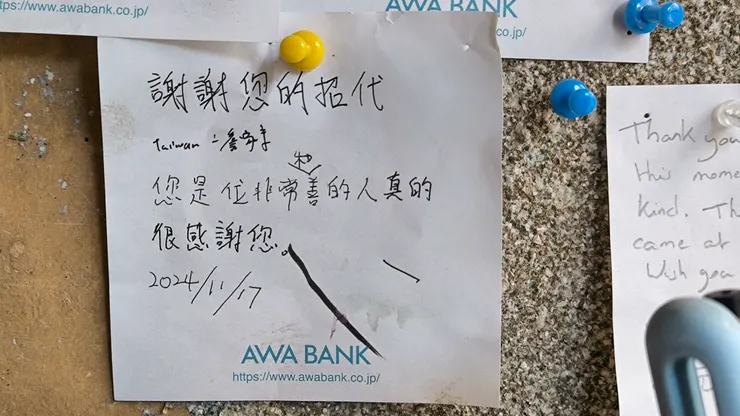 https://www.awabank.co.jp/
AWA BANK
co.jp/
謝謝您的招代
Taiwan
您是位非常和善的人真的
很感謝您。
2024/11/17
AWA BANK
https://www.awabank.co.jp/
Thank you
this mome
kind. Th
came at
Wish you